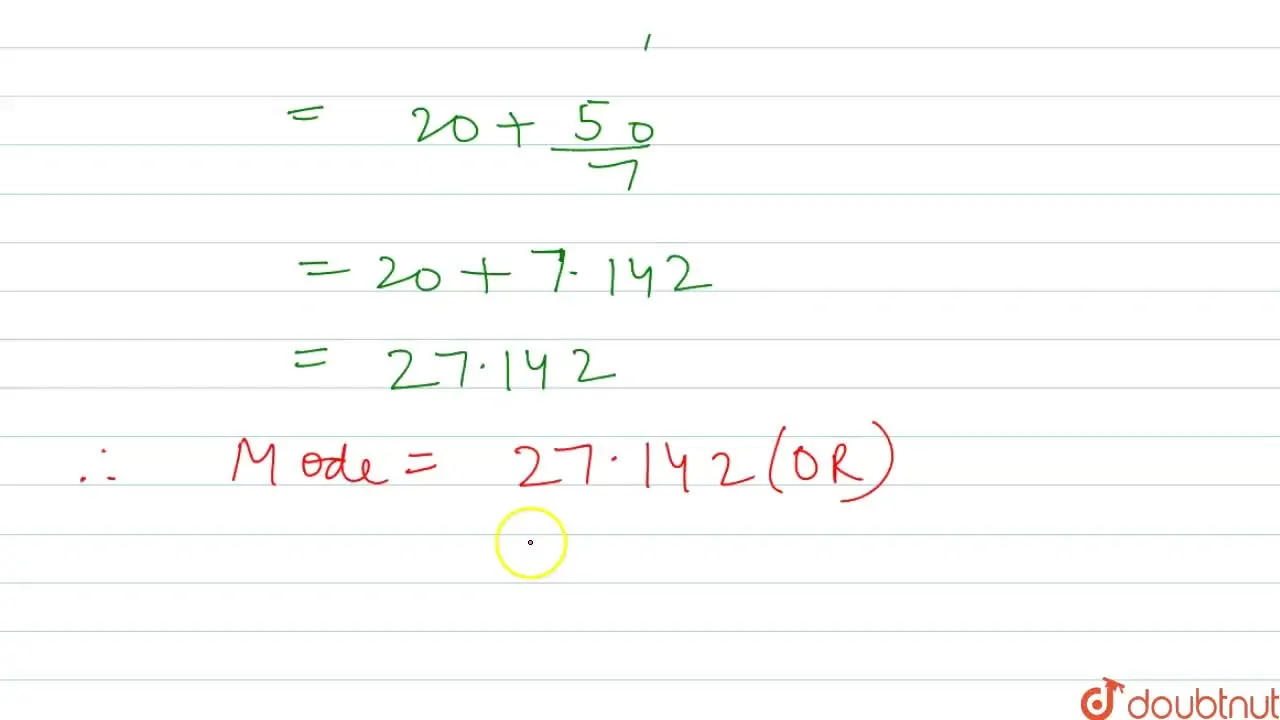 = 20 + 50/7
= 20 + 7.142
= 27.142
∴ Mode = 27.142 (OR)
doubtnut